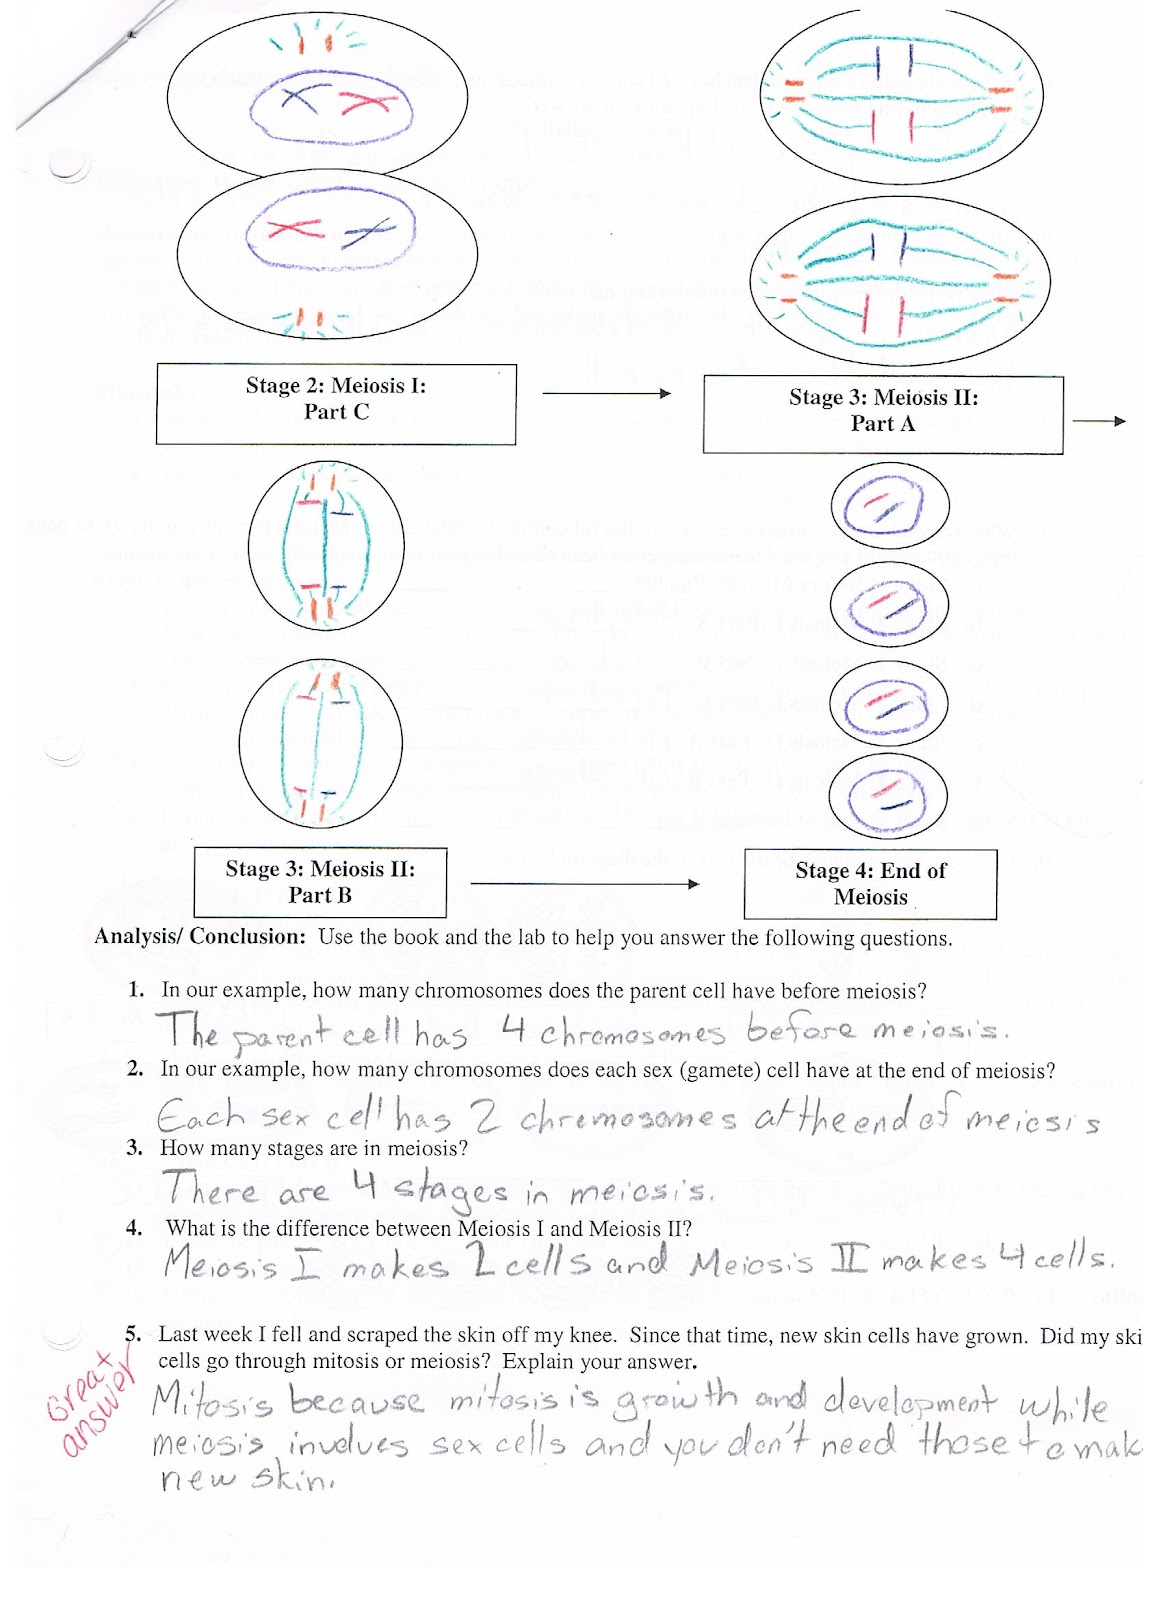 Stage 2: Meiosis I:
Part C
Stage 3: Meiosis II:
Part A
Stage 3: Meiosis II:
Part B
Stage 4: End of
Meiosis
Analysis/ Conclusion: Use the book and the lab to help you answer the following questions.
1. In our example, how many chromosomes does the parent cell have before meiosis?
The parent cell has 4 chromosomes before meiosis.
2. In our example, how many chromosomes does each sex (gamete) cell have at the end of meiosis?
Each sex cell has 2 chromosomes at the end of meiosis
3. How many stages are in meiosis?
There are 4 stages in meiosis.
4. What is the difference between Meiosis I and Meiosis II?
Meiosis I makes 2 cells and Meiosis II makes 4 cells.
5. Last week I fell and scraped the skin off my knee. Since that time, new skin cells have grown. Did my ski
cells go through mitosis or meiosis? Explain your answer.
Great
answer
Mitosis because mitosis is growth and development while
meiosis involves sex cells and you don't need those to mak
new skin.